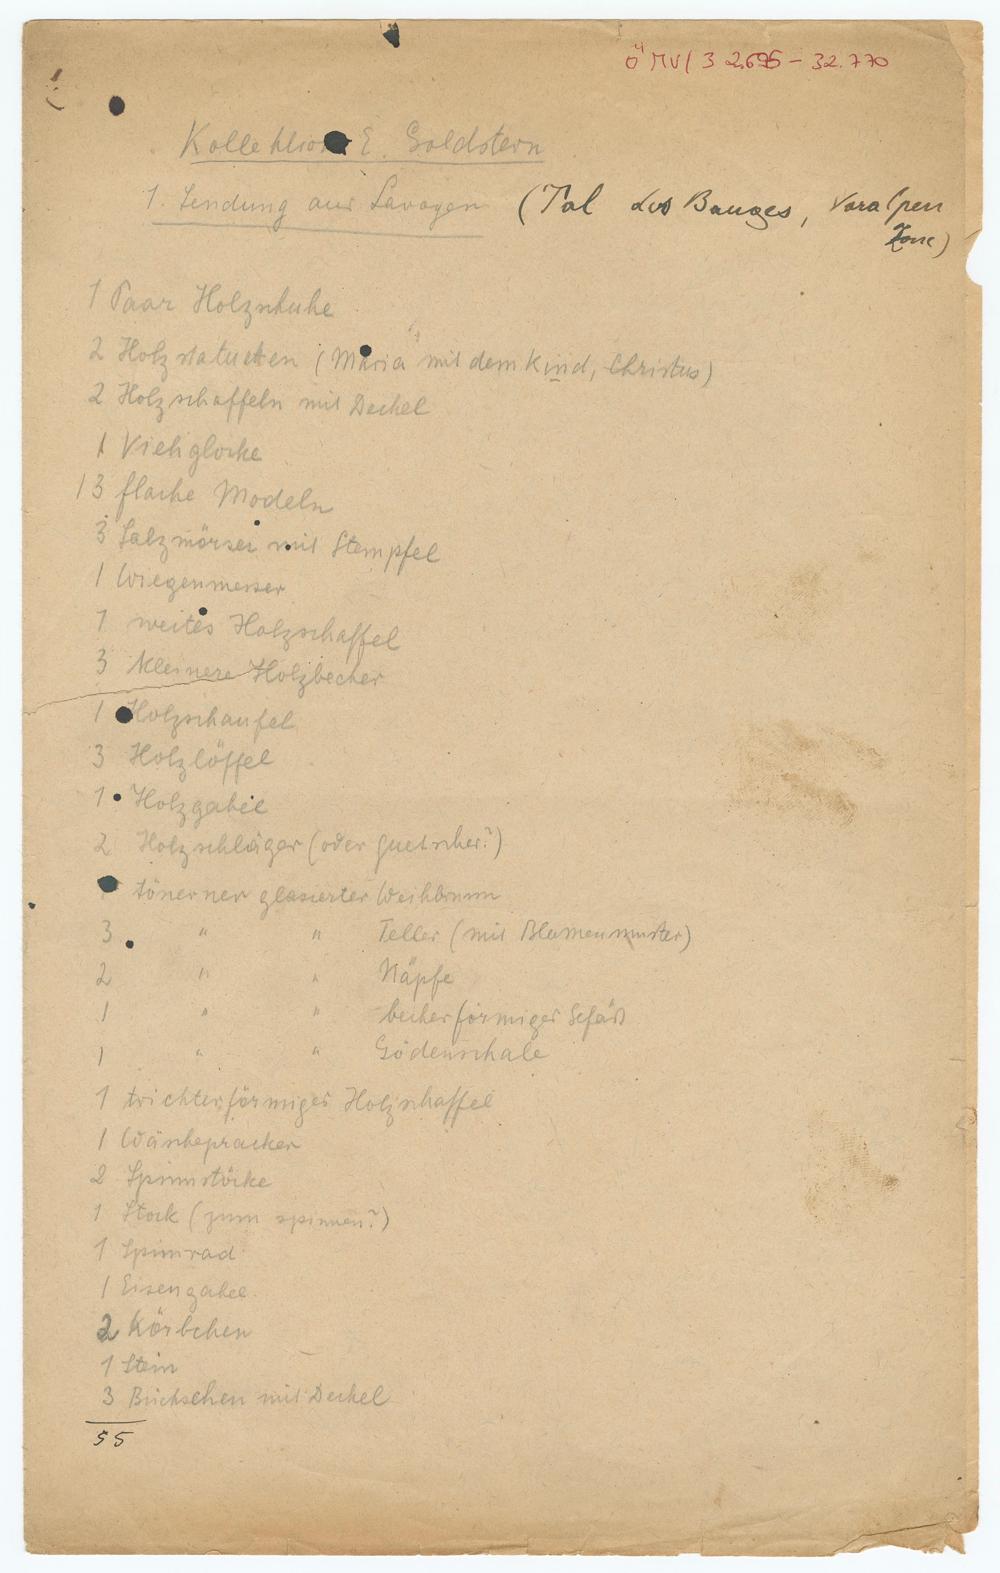 ÖMV/32.695 - 32.770
Kollektion E. Goldstern
1. Sendung aus Savoyen (Tal des Bauges, Voralpen
Zone)
1 Paar Holzschuhe
2 Holzstatuetten (Maria mit dem Kind, Christus)
2 Holzschaffeln mit Deckel
1 Viehglocke
13 flache Modeln
3 Salzmörser mit Stempfel
1 Wiegenmesser
1 weites Holzschaffel
3 kleinere Holzbecher
1 Holzschaufel
3 Holzlöffel
1 Holzgabel
2 Holzschläger (oder Quetscher?)
tönerner glasierter Weihbrunn
3 " " Teller (mit Blumenmuster)
2 " " Näpfe
1 " " becherförmiges Gefäß
1 " " Gödenschale
1 trichterförmiges Holzschaffel
1 Wäschepracker
2 Spinnstöcke
1 Stock (zum spinnen?)
1 Spinnrad
1 Eisengabel
2 Körbchen
1 Stein
3 Büchschen mit Deckel
55